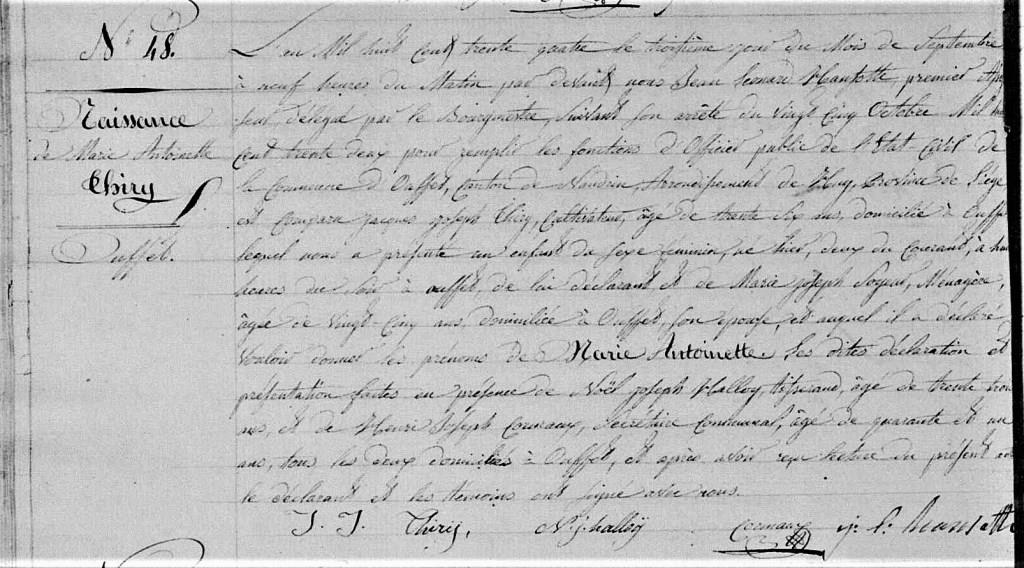 N° 48.
Naissance
de Marie Antoinette
Thiry
Ouffet.
L'an Mil huit cent trente quatre le troisième jour du Mois de Septembre
à neuf heures du Matin par devant nous Jean Leonard Hansotte, premier
délégué par le Bourgmestre, Suivant son arrêté du vingt Cinq Octobre Mil huit
Cent trente deux pour remplir les fonctions d'Officier public de l'Etat-Civil de
la Commune d'Ouffet, Canton de Nandrin, Arrondissement de Huy, Province de Liège
est Comparu jacques joseph Thiry, Cultivateur, âgé de trente Six ans, domicilié à Ouffet
lequel nous a présenté un enfant du sexe feminin, né hier, deux du Courant, à huit
heures du Soir à ouffet, de lui déclarant et de Marie joseph Ménagère,
âgée de vingt-Cinq ans, domiciliée à Ouffet, son epouse, et auquel il a déclaré
vouloir donner les prénoms de Marie Antoinette. Les dites déclaration et
présentation faites en présence de Noël joseph Halloy, âgé de trente trois
ans, et de Henri Joseph Cornaux, Secrétaire Communal, âgé de quarante et un
ans, tous les deux domiciliés à Ouffet, et après avoir reçu lecture du présent acte
le déclarant et les témoins ont signé avec nous.
J. J. Thiry, N. j. halloÿ Cornaux j. l. hansotte